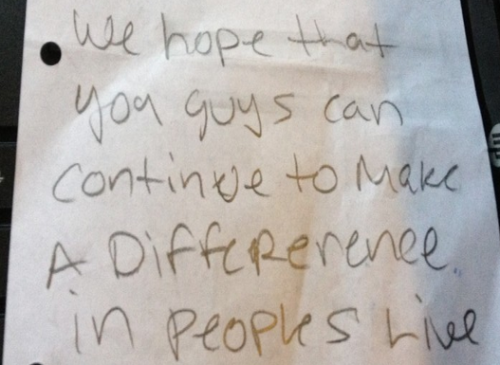 We hope that
you guys can
continue to Make
A Differerence.
in peoples Live